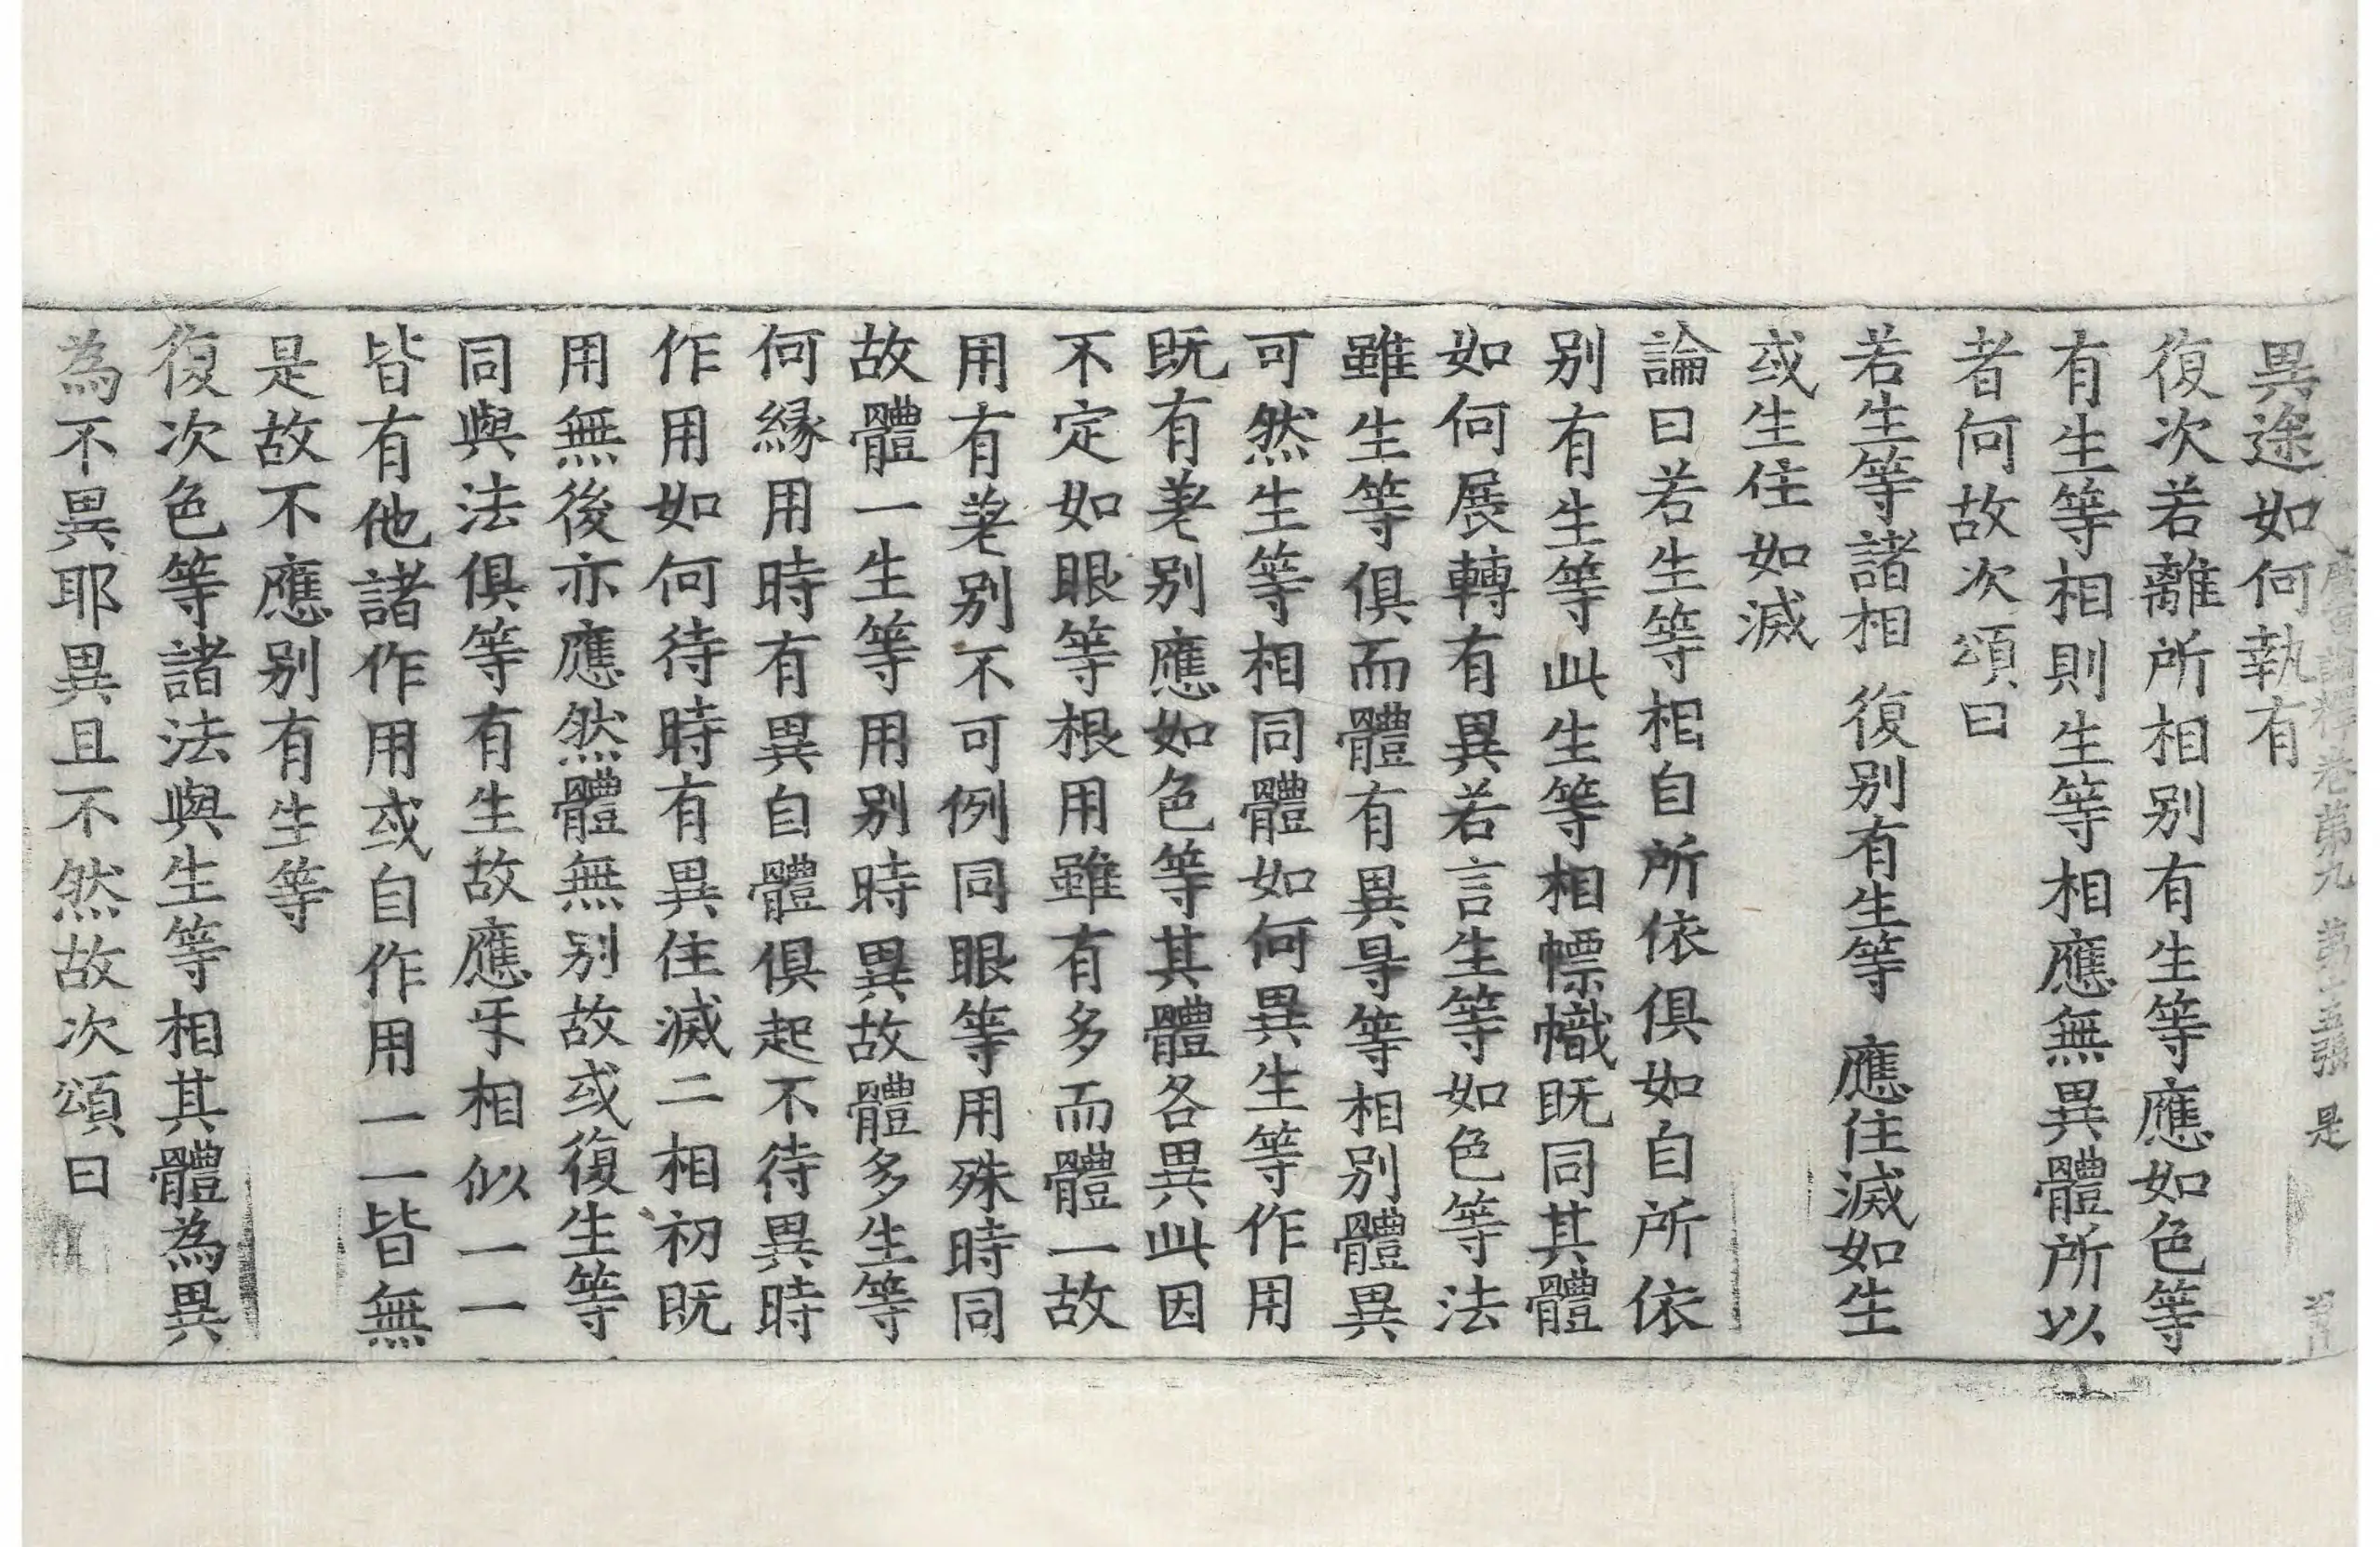 廣百論釋卷第九 第十五張 是
異途如何執有
復次若離所相別有生等應如色等
有生等相則生等相應無異體所以
者何故次頌曰
若生等諸相 復別有生等 應住滅如生
或生住如滅
論曰若生等相自所依俱如自所依
別有生等此生等相幖幟既同其體
如何展轉有異若言生等如色等法
雖生等俱而體有異㝵等相別體異
可然生等相同體如何異生等作用
既有差別應如色等其體各異此因
不定如眼等根用雖有多而體一故
用有差別不可例同眼等用殊時同
故體一生等用別時異故體多生等
何緣用時有異自體俱起不待異時
作用如何待時有異住滅二相初既
用無後亦應然體無別故或復生等
同與法俱等有生故應㸦相似一一
皆有他諸作用或自作用一一皆無
是故不應別有生等
復次色等諸法與生等相其體為異
為不異耶異且不然故次頌曰